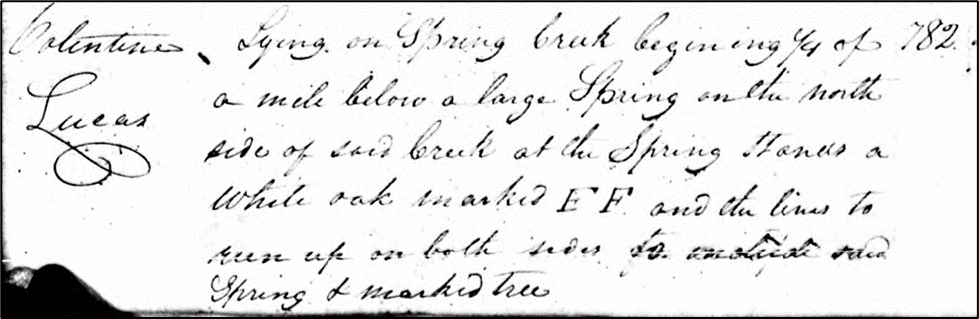 Valentine Lying on Spring Creek begining 1/4 of 782
Lucas a mile below a large Spring on the north
side of said Creek at the Spring Stands a
White oak marked E F. and the lines to
run up on both sides to include said
Spring & marked tree